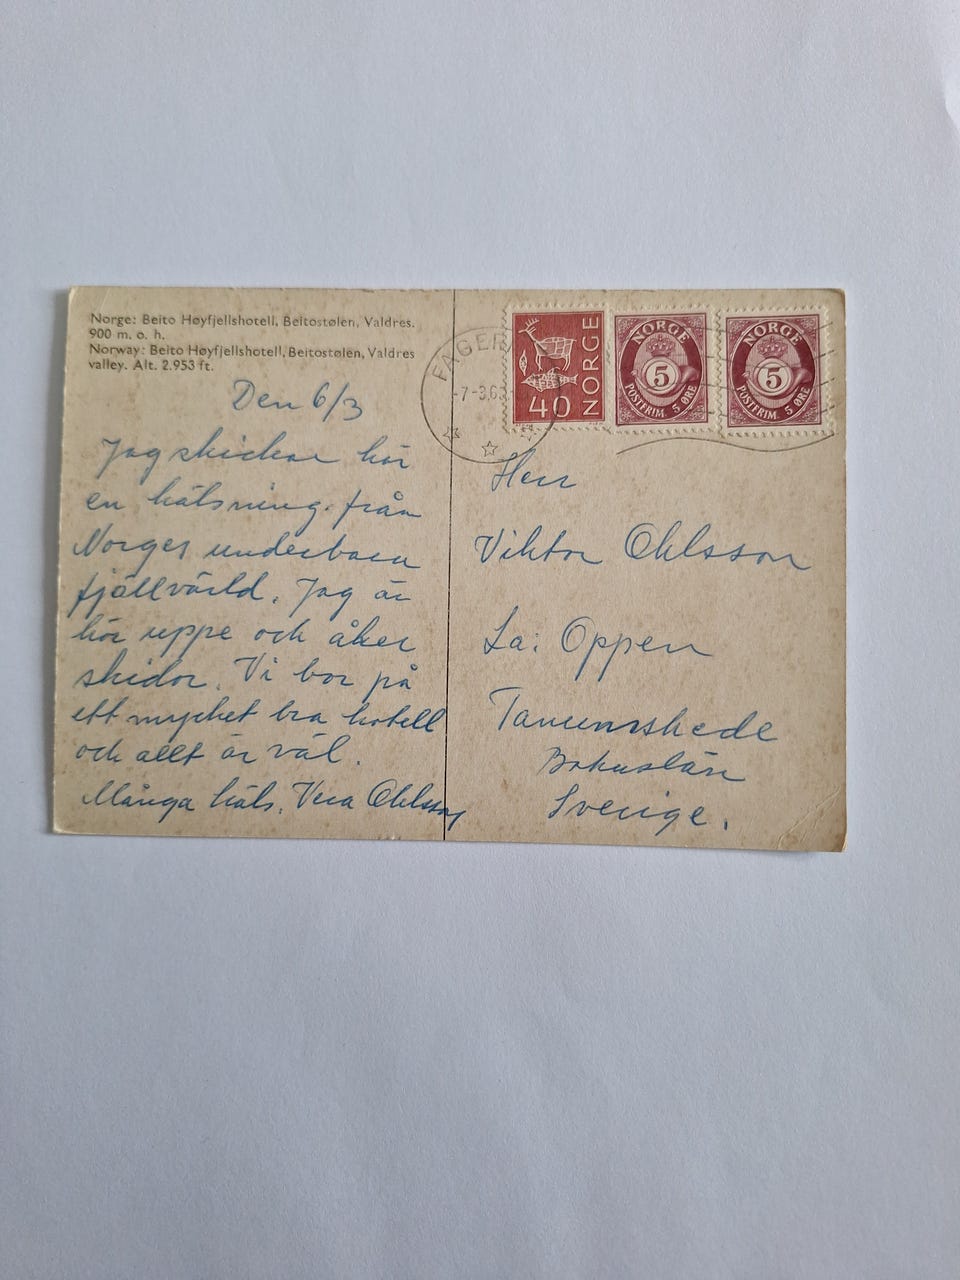 Norge: Beito Høyfjellshotell, Beitostølen, Valdres.
900 m. o. h.
Norway: Beito Høyfjellshotell, Beitostølen, Valdres
valley. Alt. 2.953 ft.
Den 6/3
Jag skickar här
en hälsning från
Norges underbara
fjällvärld. Jag är
här uppe och åker
skidor. Vi bor på
ett mycket bra hotell
och allt är väl.
Många häls. Vera Ohlsson
FAGER
-7-3.63
40 NORGE
NORGE
5
POSTFRIM. 5 ØRE
NORGE
5
POSTFRIM. 5 ØRE
Herr
Viktor Ohlsson
La: Oppen
Tanumshede
Bohuslän
Sverige.